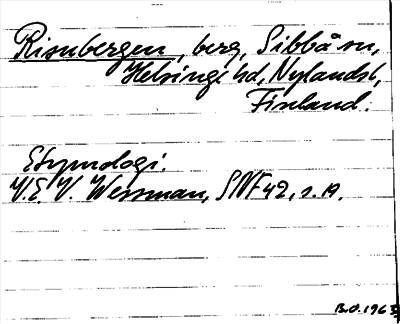 Risnbergen, berg, Sibbå sn,
Helsinge hd, Nylands l,
Finland.
Etymologi.
V.E.V. Wessman, SNF 42, s. 19.
B.O. 1963